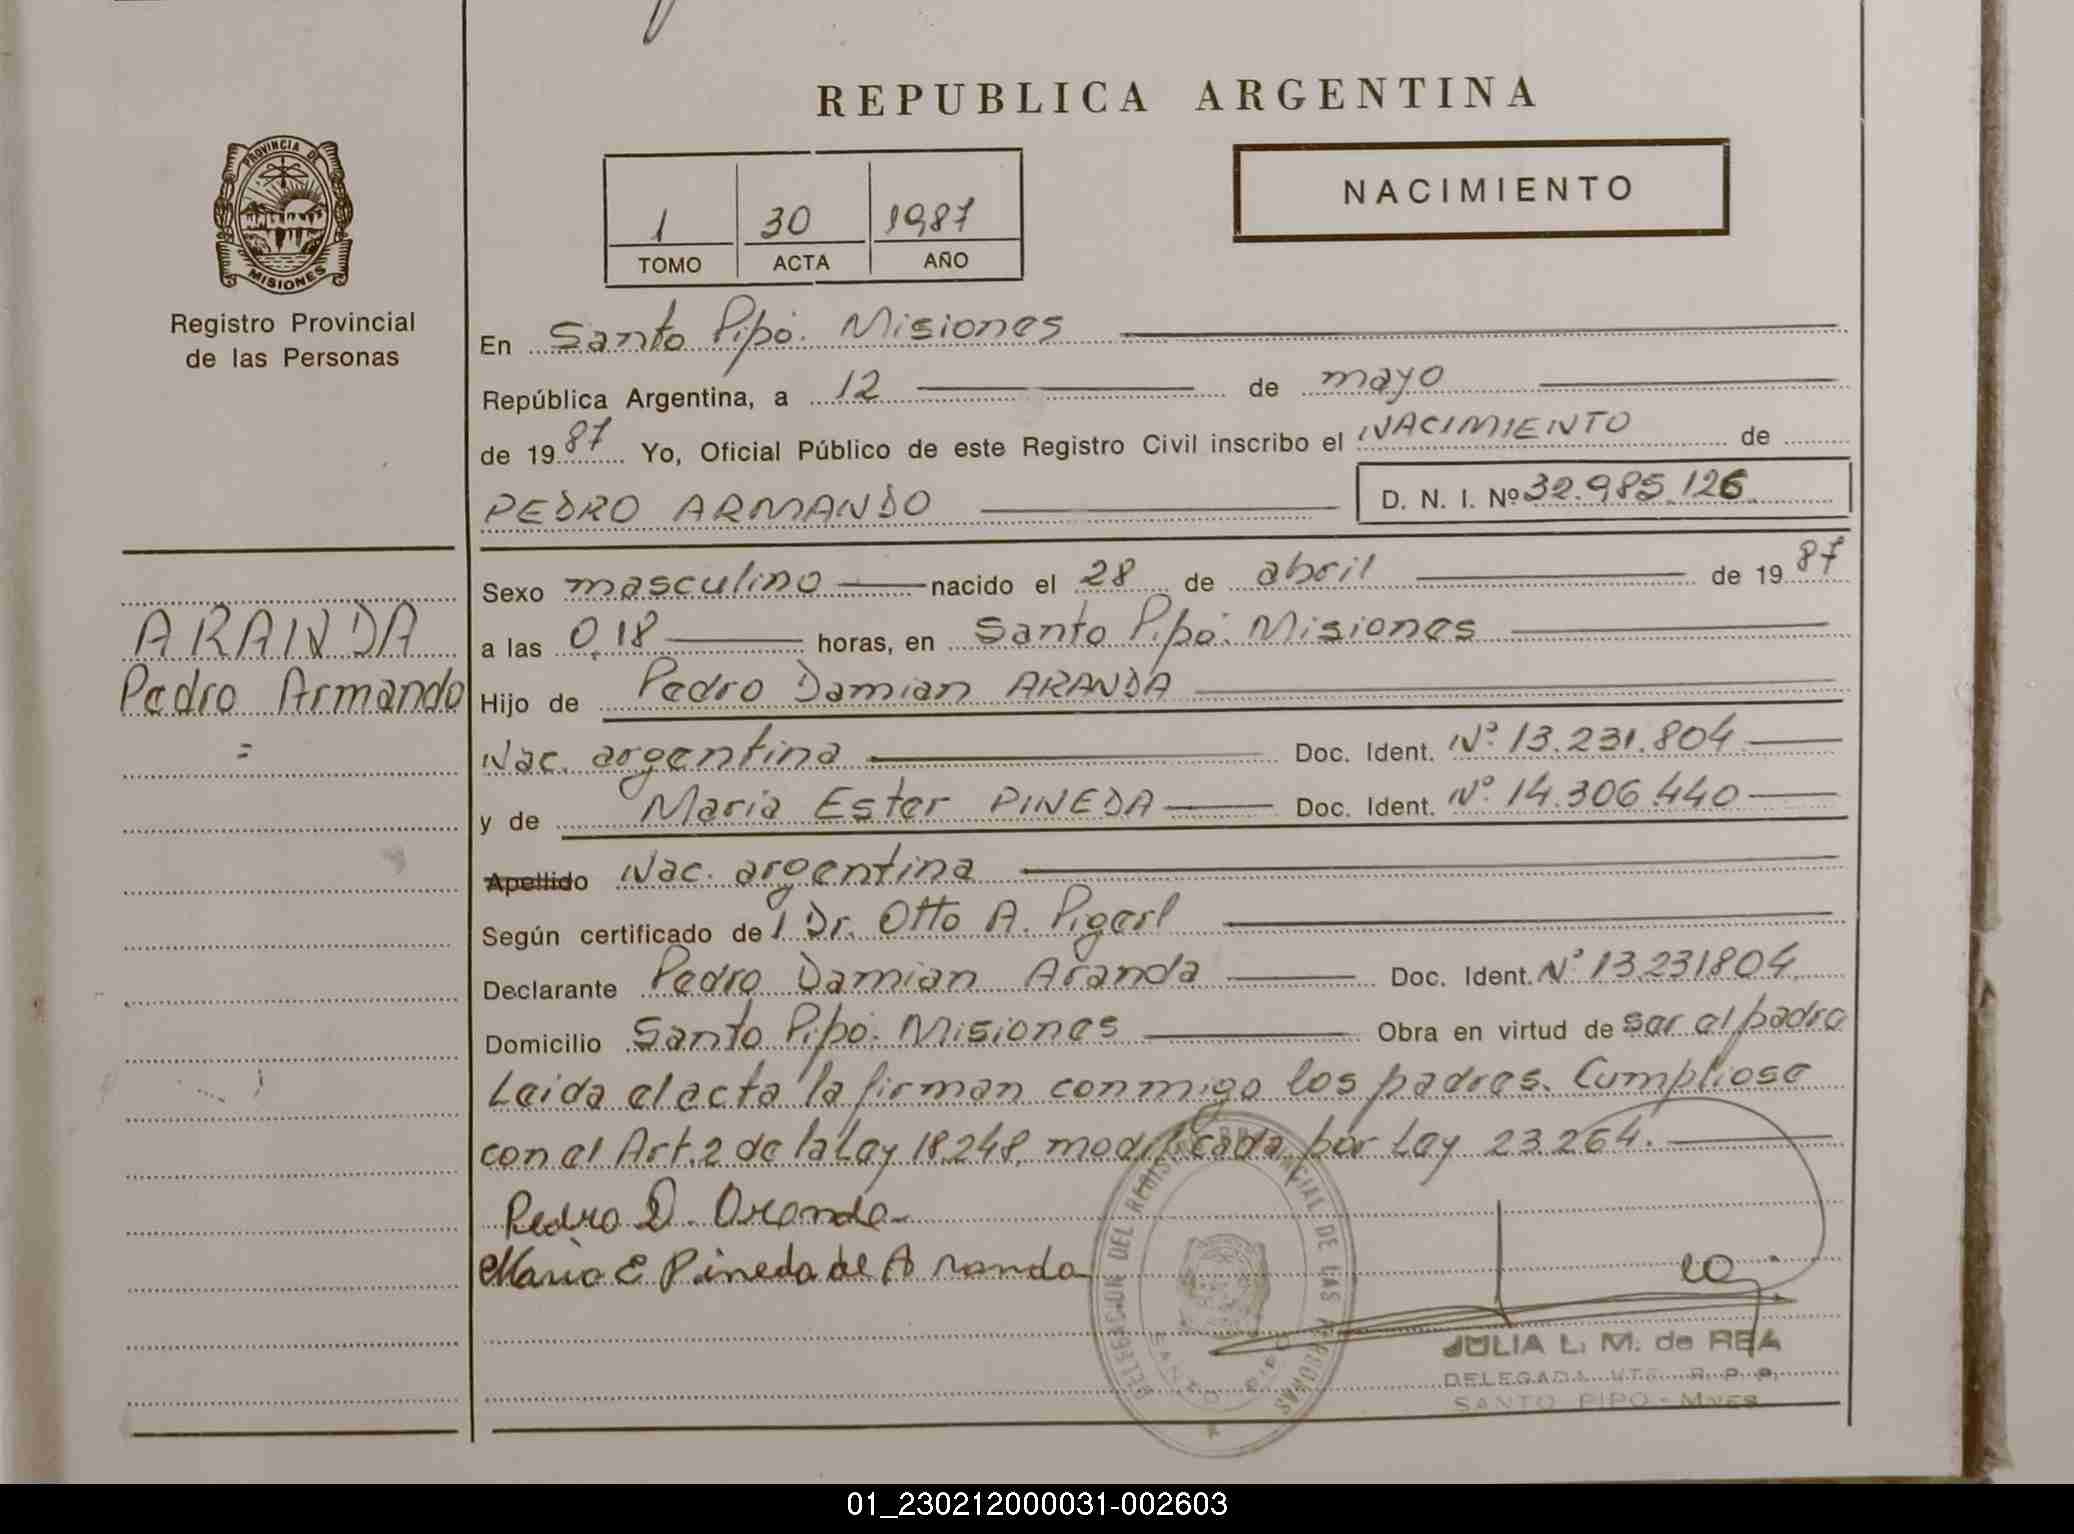 REPUBLICA ARGENTINA
PROVINCIA DE
MISIONES
Registro Provincial
de las Personas
1 30 1987
TOMO ACTA AÑO
NACIMIENTO
En Santo Pipó. Misiones
República Argentina, a 12 de mayo
de 1987 Yo, Oficial Público de este Registro Civil inscribo el NACIMIENTO de
PEDRO ARMANDO D. N. I. Nº 32.985.126
ARANDA
Pedro Armando
=
Sexo masculino nacido el 28 de abril de 1987
a las 0,18 horas, en Santo Pipó. Misiones
Hijo de Pedro Damian ARANDA
Nac. argentina Doc. Ident. Nº 13.231.804
y de Maria Ester PINEDA Doc. Ident. Nº 14.306.440
Apellido Nac. argentina
Según certificado del Dr. Otto A. Pigerl
Declarante Pedro Damian Aranda Doc. Ident. Nº 13.231804
Domicilio Santo Pipó. Misiones Obra en virtud de ser el padre
Leida el acta la firman conmigo los padres. Cumpliose
con el Art. 2 de la Ley 18.248, modificada por Ley 23.264.
Pedro D. Aranda
Maria E Pineda de Aranda
DELEGACION DEL REGISTRO PROVINCIAL DE LAS PERSONAS
SANTO PIPO
JULIA L. M. de REA
DELEGADA R. P. P.
SANTO PIPO - Mnes
01_230212000031-002603